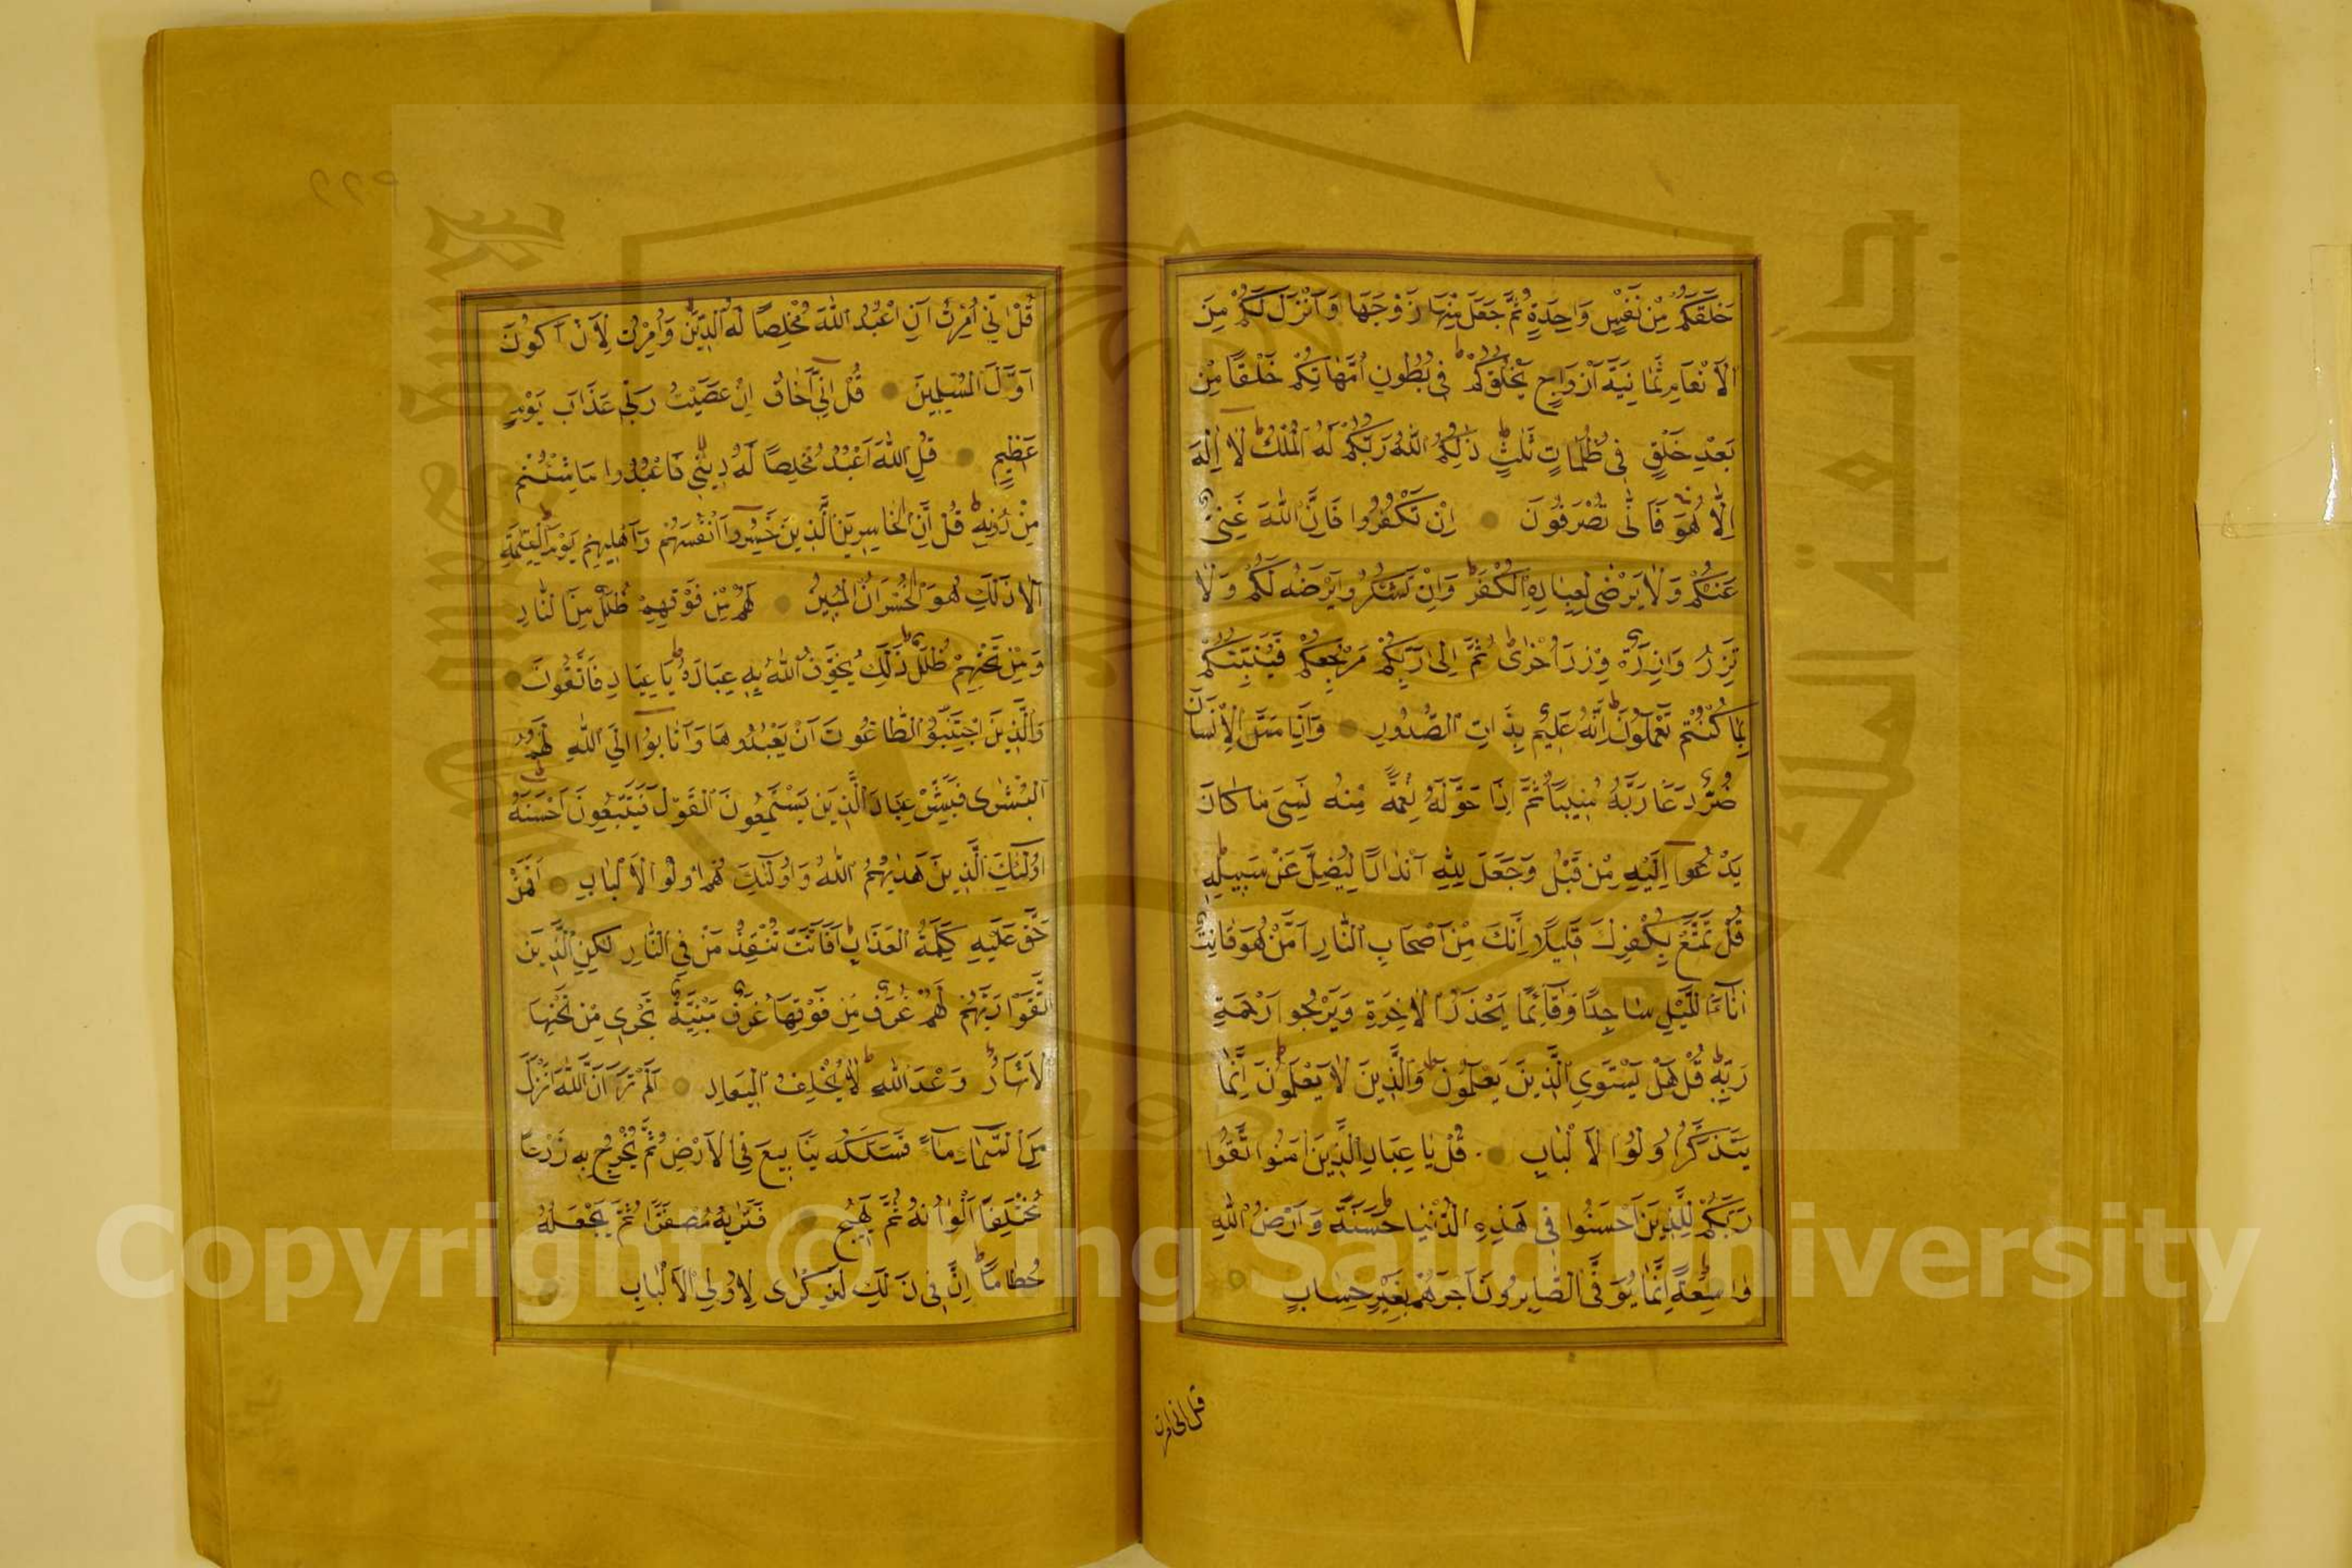 خَلَقَكُمْ مِنْ نَفْسٍ وَاحِدَةٍ ثُمَّ جَعَلَ مِنْهَا زَوْجَهَا وَأَنْزَلَ لَكُمْ مِنَ
الْأَنْعَامِ ثَمَانِيَةَ أَزْوَاجٍ يَخْلُقُكُمْ فِي بُطُونِ أُمَّهَاتِكُمْ خَلْقًا مِنْ
بَعْدِ خَلْقٍ فِي ظُلُمَاتٍ ثَلٰثٍ ذٰلِكُمُ اللّٰهُ رَبُّكُمْ لَهُ الْمُلْكُ لَا إِلٰهَ
إِلَّا هُوَ فَأَنّٰى تُصْرَفُونَ إِنْ تَكْفُرُوا فَإِنَّ اللّٰهَ غَنِيٌّ
عَنْكُمْ وَلَا يَرْضٰى لِعِبَادِهِ الْكُفْرَ وَإِنْ تَشْكُرُوا يَرْضَهُ لَكُمْ وَلَا
تَزِرُ وَازِرَةٌ وِزْرَ أُخْرٰى ثُمَّ إِلٰى رَبِّكُمْ مَرْجِعُكُمْ فَيُنَبِّئُكُمْ
بِمَا كُنْتُمْ تَعْمَلُونَ إِنَّهُ عَلِيمٌ بِذَاتِ الصُّدُورِ وَإِذَا مَسَّ الْإِنْسَانَ
ضُرٌّ دَعَا رَبَّهُ مُنِيبًا ثُمَّ إِذَا خَوَّلَهُ نِعْمَةً مِنْهُ نَسِيَ مَا كَانَ
يَدْعُوا إِلَيْهِ مِنْ قَبْلُ وَجَعَلَ لِلّٰهِ أَنْدَادًا لِيُضِلَّ عَنْ سَبِيلِهِ
قُلْ تَمَتَّعْ بِكُفْرِكَ قَلِيلًا إِنَّكَ مِنْ أَصْحَابِ النَّارِ أَمَّنْ هُوَ قَانِتٌ
آنَاءَ اللَّيْلِ سَاجِدًا وَقَائِمًا يَحْذَرُ الْآخِرَةَ وَيَرْجُوا رَحْمَةَ
رَبِّهِ قُلْ هَلْ يَسْتَوِي الَّذِينَ يَعْلَمُونَ وَالَّذِينَ لَا يَعْلَمُونَ إِنَّمَا
يَتَذَكَّرُ أُولُوا الْأَلْبَابِ قُلْ يَا عِبَادِ الَّذِينَ آمَنُوا اتَّقُوا
رَبَّكُمْ لِلَّذِينَ أَحْسَنُوا فِي هٰذِهِ الدُّنْيَا حَسَنَةٌ وَأَرْضُ اللّٰهِ
وَاسِعَةٌ إِنَّمَا يُوَفَّى الصَّابِرُونَ أَجْرَهُمْ بِغَيْرِ حِسَابٍ
قل اني امرت
قُلْ إِنِّي أُمِرْتُ أَنْ أَعْبُدَ اللّٰهَ مُخْلِصًا لَهُ الدِّينَ وَأُمِرْتُ لِأَنْ أَكُونَ
أَوَّلَ الْمُسْلِمِينَ قُلْ إِنِّي أَخَافُ إِنْ عَصَيْتُ رَبِّي عَذَابَ يَوْمٍ
عَظِيمٍ قُلِ اللّٰهَ أَعْبُدُ مُخْلِصًا لَهُ دِينِي فَاعْبُدُوا مَا شِئْتُمْ
مِنْ دُونِهِ قُلْ إِنَّ الْخَاسِرِينَ الَّذِينَ خَسِرُوا أَنْفُسَهُمْ وَأَهْلِيهِمْ يَوْمَ الْقِيٰمَةِ
أَلَا ذٰلِكَ هُوَ الْخُسْرَانُ الْمُبِينُ لَهُمْ مِنْ فَوْقِهِمْ ظُلَلٌ مِنَ النَّارِ
وَمِنْ تَحْتِهِمْ ظُلَلٌ ذٰلِكَ يُخَوِّفُ اللّٰهُ بِهِ عِبَادَهُ يَا عِبَادِ فَاتَّقُونَ
وَالَّذِينَ اجْتَنَبُوا الطَّاغُوتَ أَنْ يَعْبُدُوهَا وَأَنَابُوا إِلَى اللّٰهِ لَهُمُ
الْبُشْرٰى فَبَشِّرْ عِبَادِ الَّذِينَ يَسْتَمِعُونَ الْقَوْلَ فَيَتَّبِعُونَ أَحْسَنَهُ
أُولٰئِكَ الَّذِينَ هَدٰيهُمُ اللّٰهُ وَأُولٰئِكَ هُمْ أُولُوا الْأَلْبَابِ أَفَمَنْ
حَقَّ عَلَيْهِ كَلِمَةُ الْعَذَابِ أَفَأَنْتَ تُنْقِذُ مَنْ فِي النَّارِ لٰكِنِ الَّذِينَ
اتَّقَوْا رَبَّهُمْ لَهُمْ غُرَفٌ مِنْ فَوْقِهَا غُرَفٌ مَبْنِيَّةٌ تَجْرِي مِنْ تَحْتِهَا
الْأَنْهَارُ وَعْدَ اللّٰهِ لَا يُخْلِفُ اللّٰهُ الْمِيعَادَ أَلَمْ تَرَ أَنَّ اللّٰهَ أَنْزَلَ
مِنَ السَّمَاءِ مَاءً فَسَلَكَهُ يَنَابِيعَ فِي الْأَرْضِ ثُمَّ يُخْرِجُ بِهِ زَرْعًا
مُخْتَلِفًا أَلْوَانُهُ ثُمَّ يَهِيجُ فَتَرٰيهُ مُصْفَرًّا ثُمَّ يَجْعَلُهُ
حُطَامًا إِنَّ فِي ذٰلِكَ لَذِكْرٰى لِأُولِي الْأَلْبَابِ
جامعة الملك
King Saud University
1957
Copyright © King Saud University